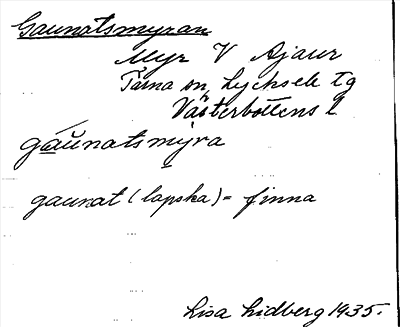 Gaunatsmyran
Myr V Ajaur
Tärna sn, Lycksele tg
Västerbottens l
gáu̅natsmyra
gaunat (lapska) = finna
Lisa Lidberg 1935.